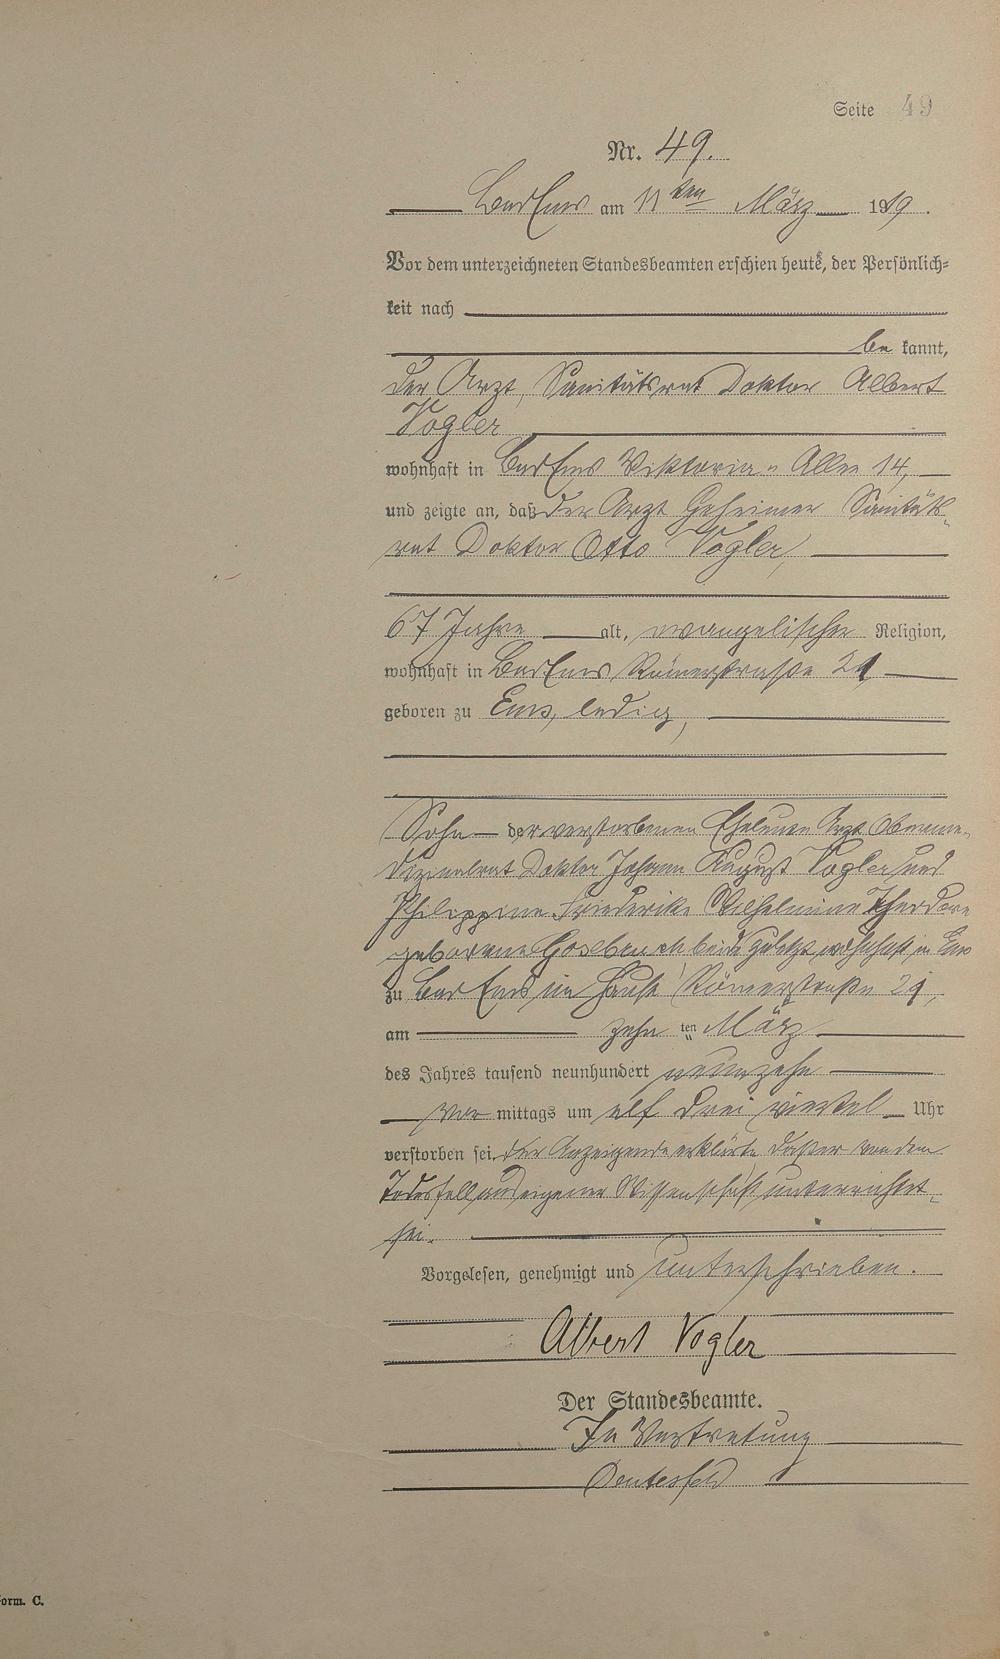 Seite 49
Nr. 49.
Bad Ems am 11ten März 1919.
Vor dem unterzeichneten Standesbeamten erschien heute, der Persönlich-
keit nach
be kannt,
der Arzt, Sanitätsrat Doktor Albert
Vogler
wohnhaft in Bad Ems Viktoria-Allee 14,
und zeigte an, daß der Arzt Geheimer Sanitäts-
rat Doktor Otto Vogler,
67 Jahre alt, evangelischer Religion,
wohnhaft in Bad Ems Römerstraße 21,
geboren zu Ems, ledig,
Sohn der verstorbenen Eheleute Arzt Oberme-
dizinalrat Doktor Johann August Vogler und
Philippine Friederike Wilhelmine Theodore
geborene Gosebruch beide zuletzt wohnhaft in Ems
zu Bad Ems im Hause Römerstraße 21,
am zehn ten März
des Jahres tausend neunhundert neunzehn
Vor mittags um elf drei viertel Uhr
verstorben sei. Der Anzeigende erklärte daß er von dem
Todesfall aus eigener Wissenschaft unterrichtet
sei.
Vorgelesen, genehmigt und unterschrieben.
Albert Vogler
Der Standesbeamte.
In Vertretung
Form. C.